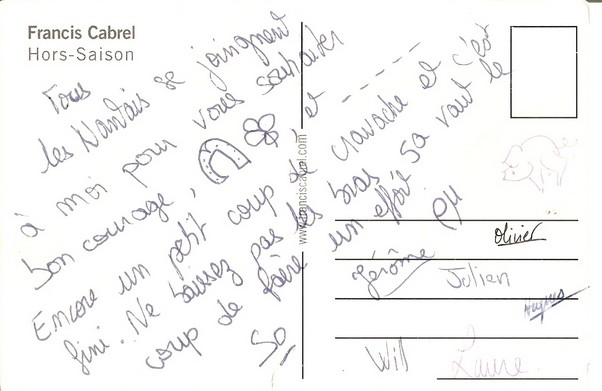 Francis Cabrel
Hors-Saison
Tous
les Nantais se joignent
à moi pour vous souhaiter
bon courage, et
Encore un petit coup de cravache et c'est
fini. Ne baissez pas les bras sa vaut le
coup de faire un effort.
So
PH
www.franciscabrel.com
Olivier
Jérôme
Julien
Hugues
Will
Laure